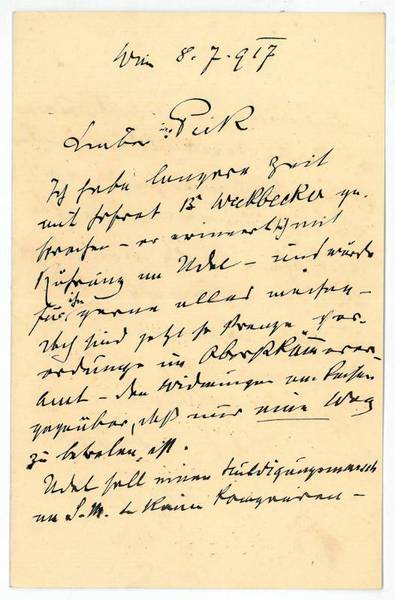 Wien 8. 7. 917
Lieber Pick
Ich habe längere Zeit
mit Hofrat B Weckbecker ge-
sprochen – er erinnert sich mit
Rührung an Udel – und würde
für ihn gerne alles machen –
doch sind jetzt so strenge Ver-
ordnungen im Oberstkämmerer-
amt – den Widmungen am Kaiser
gegenüber, daß nur eine Weg
zu betreten ist.
Udel soll einen Huldigungsmarsch
an S. M. d. Kaiser komponieren –